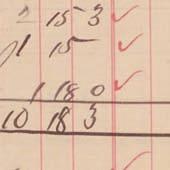 2 15 3 ✓
1 15 ✓
1 18 0 ✓
10 18 3